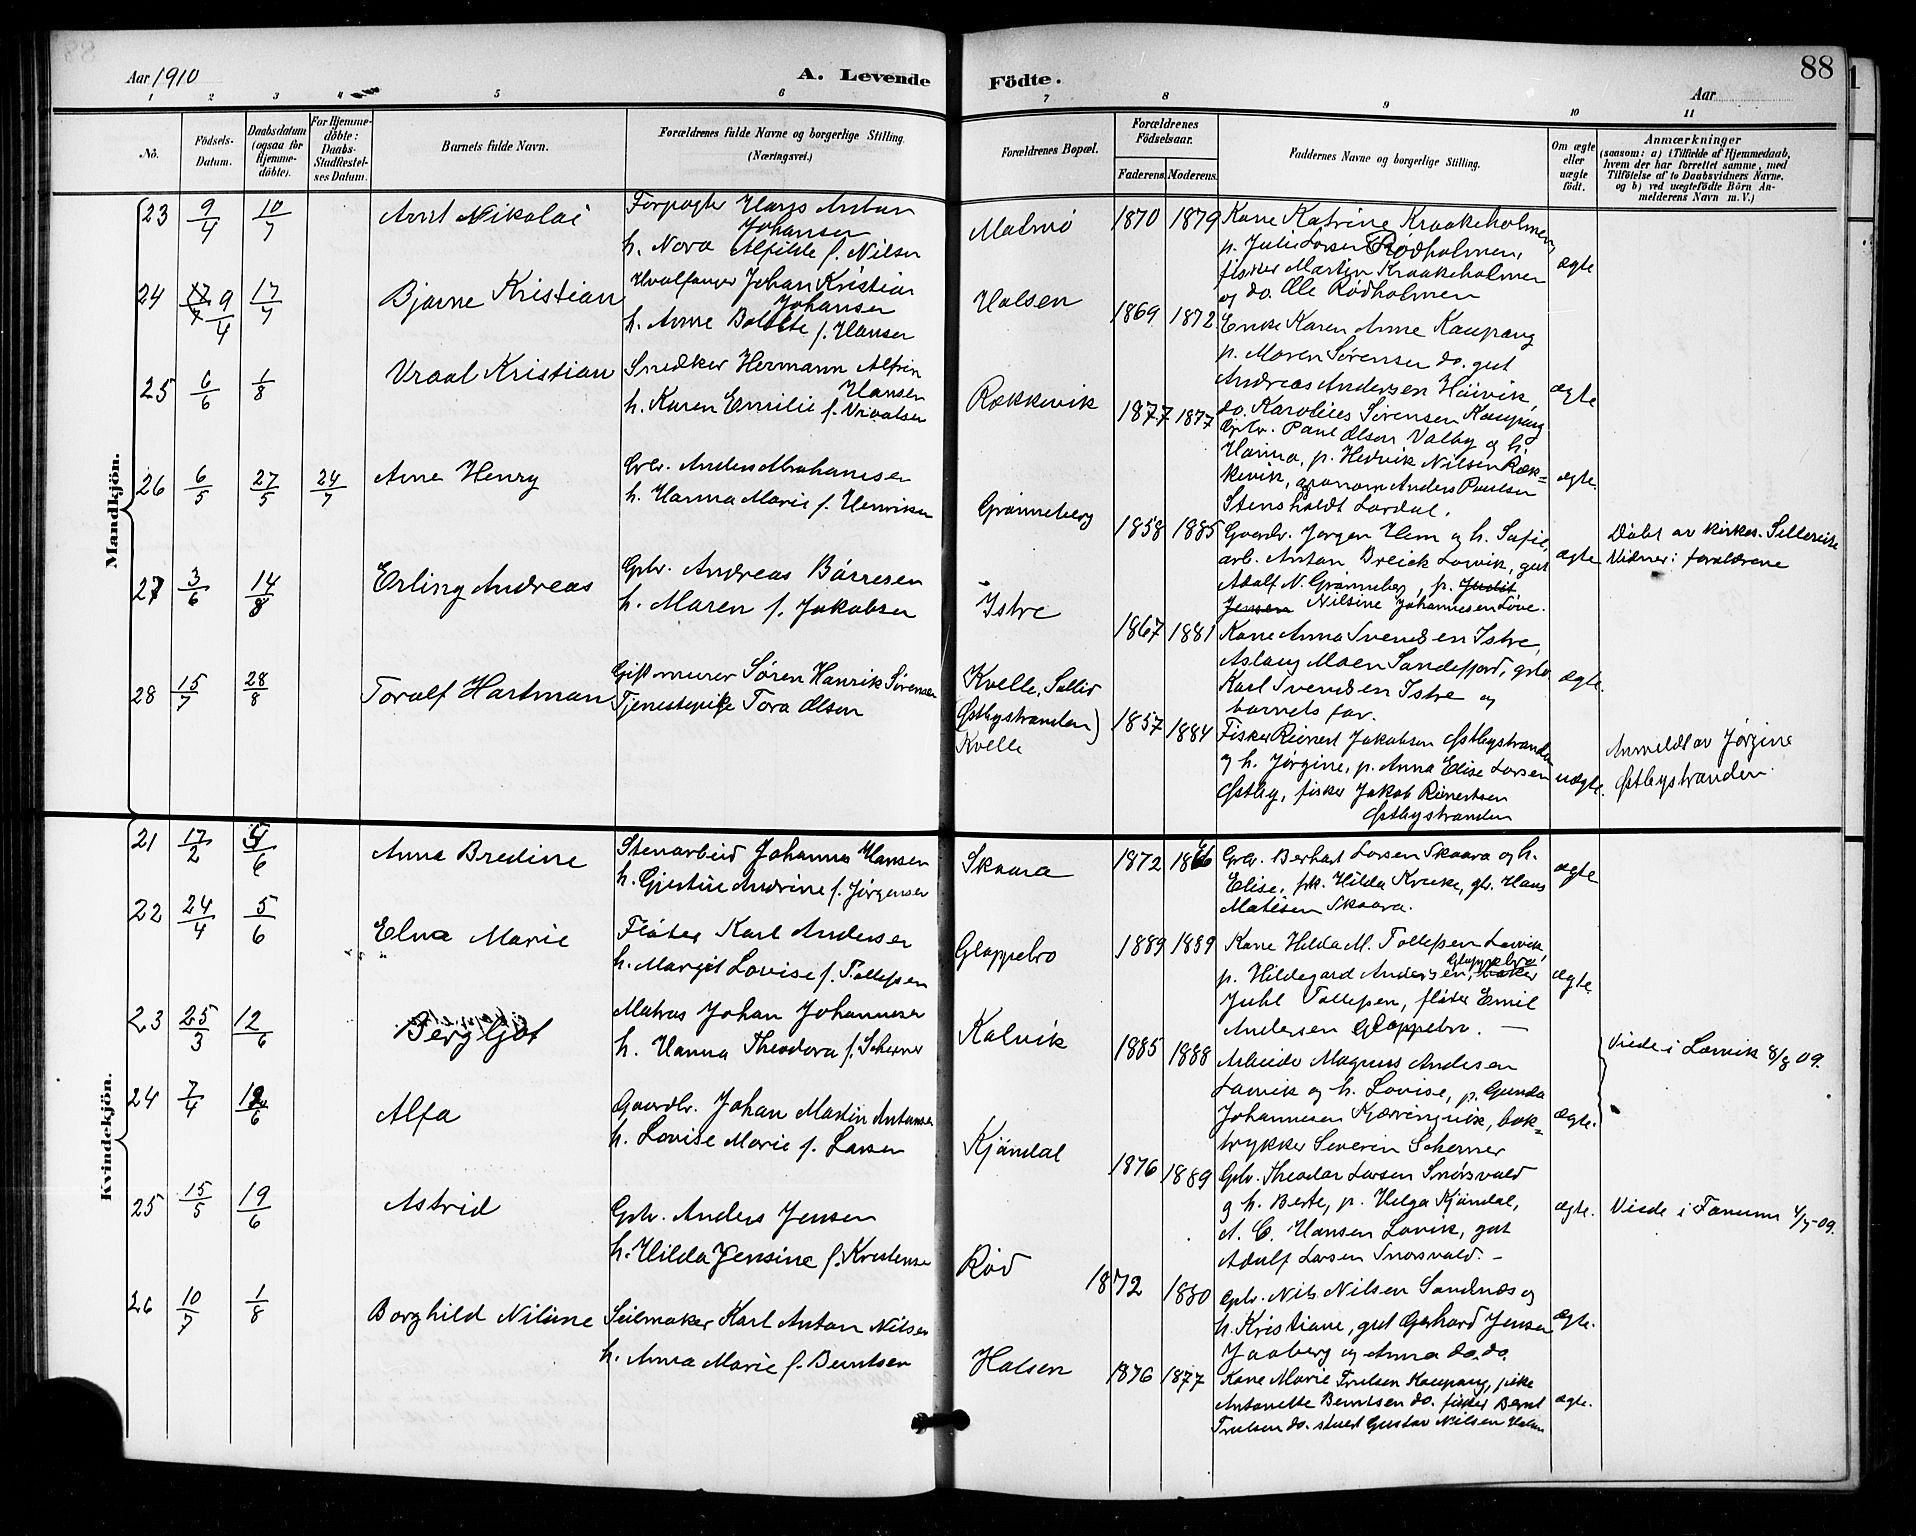 Aar 1910
A. Levende
Födte.
88
Aar
1 2 3 4 5 6 7 8 9 10 11
No.
Födsels-
Datum.
Daabsdatum
(ogsaa for
Hjemme-
döbte).
For Hjemme-
döbte:
Daabs-
Stadfæstel-
ses Datum.
Barnets fulde Navn.
Forældrenes fulde Navne og borgerlige Stilling.
(Næringsvei.)
Forældrenes Bopæl.
Forældrenes
Födselsaar.
Faderens.
Moderens.
Faddernes Navne og borgerlige Stilling.
Om ægte
eller
uægte
födt.
Anmærkninger
(saasom: a) i Tilfælde af Hjemmedaab,
hvem der har forrettet samme, med
Tilföielse af to Daabsvidners Navne,
og b) ved uægtefödte Börn An-
melderens Navn m. V.)
Mandkjön.
23 9/4 10/7 Arnt Nikolai
Forpagter Hans Anton
Johansen
h. Nora Alfilde f. Nilsen
Malmö 1870 1879
Kone Katrine Kraakeholmen,
p. Julie Larsen Rödholmen,
fisker Martin Kraakeholmen
og do. Ole Rödholmen
ægte
24 17/7 9/4 17/7 Bjarne Kristian
Hvalfanger Johan Kristian
Johansen
h. Anne Bolette f. Hansen
Halsen 1869 1872
Enke Karen Anne Kaupang
p. Maren Sørensen do. gut
Andreas Andersen Håivik,
do. Karolius Sørensen Kaupang
ægte
25 6/6 1/8 Vraal Kristian
Snedker Hermann Alfrin
Hansen
h. Karen Emilie f. Vraalsen
Rækkevik 1877 1877
Gbr. Paul Olsen Valby og h.
Hanna, p. Hedvik Nilsen Ræk-
kevik, gronom Anders Paulsen
Stensholdt Lardal.
ægte.
26 6/5 27/5 24/7 Arne Henry
Gbr. Anders Abrahamsen
h. Hanna Marie f. Henriksen
Grønneberg 1858 1885
Gaardbr. Jørgen Hem og h. Sofie,
arb. Anton Breiek Larvik, gut
Adolf N. Grønneberg, p. Judit
Jensen Nilsine Johannesen Løve.
ægte
Døbt av kirkes.
Vidner: forældrene
27 3/6 14/8 Erling Andreas
Gbr. Andreas Börresen
h. Maren f. Jakobsen
Istre 1867 1881
Kone Anna Svendsen Istre,
Aslaug Moen Sandefjord, grbr.
Karl Svendsen Istre og
barnets far.
ægte.
28 15/7 28/8 Toralf Hartman
Gift murer Søren Henrik Sørensen
Tjenestepike Tora Olsen
Kvelle,
Østbystranden)
Kvelle 1857 1884
Fisker Reinert Jakobsen Østbystranden
og h. Jørgine, p. Anna Elise Larsen
Østby, fisker Jakob Reinertsen
Østbystranden
uægte.
Anmeldt av Jørgine
Østbystranden.
Kvindekjön.
21 17/2 5/6 Anna Bredine
Stenarbeid Johannes Hansen
h. Gjertine Andrine f. Jørgensen
Skaara 1872
Grbr. Berhart Larsen Skaara og h.
Elise, frk. Hilda Kveke, gbr. Hans
Matisen Skaara.
ægte
22 24/4 5/6 Elna Marie
Fløter Karl Andersen
h. Margit Lovise f. Tollefsen
Gloppebro 1889 1889
Kone Hilda M. Tollefsen Larvik,
Gloppebro,
p. Hildegard Andersen, baker
Juhl Tollefsen, fløter Emil
Andersen Gloppebro. —
ægte.
23 25/3 12/6 Bergljot
Matros Johan Johannesen
h. Hanna Theodora f. Scherner
Kalvik 1885 1888
Arbeider Magnus Andersen
Larvik og h. Lovise, p. Gunda
Johannesen Kjærringvik, bok-
trykker Severin Scherner
ægte.
Viede i Larvik 8/8 09.
24 7/4 12/6 Alfa
Gaardbr. Johan Martin Antonsen
h. Lovise Marie f. Larsen
Kjöndal 1876 1889
Gbr. Theodor Larsen Snörsvald
og h. Berte, p. Helga Kjöndal,
A. C. Hansen Larvik, gut
Adolf Larsen Snorsvald. —
ægte.
Viede i Fanum 4/7-09.
25 15/5 19/6 Astrid
Gbr. Anders Jensen
h. Hilda Jensine f. Kristensen
Röd 1872 1880
Gbr. Nils Nilsen Sandnæs og
h. Kristiane, gut Gerhard Jensen
Jaaberg og Anna do. do.
ægte.
26 10/7 1/8 Borghild Nilsine
Seilmaker Karl Anton Nilsen
h. Anna Marie f. Berntsen
Halsen 1876 1877
Kone Marie Trulsen Kaupang, pike
Antonette Berntsen do. fisker Bernt
Trulsen do. stuert Gustav Nilsen Halsen
ægte.